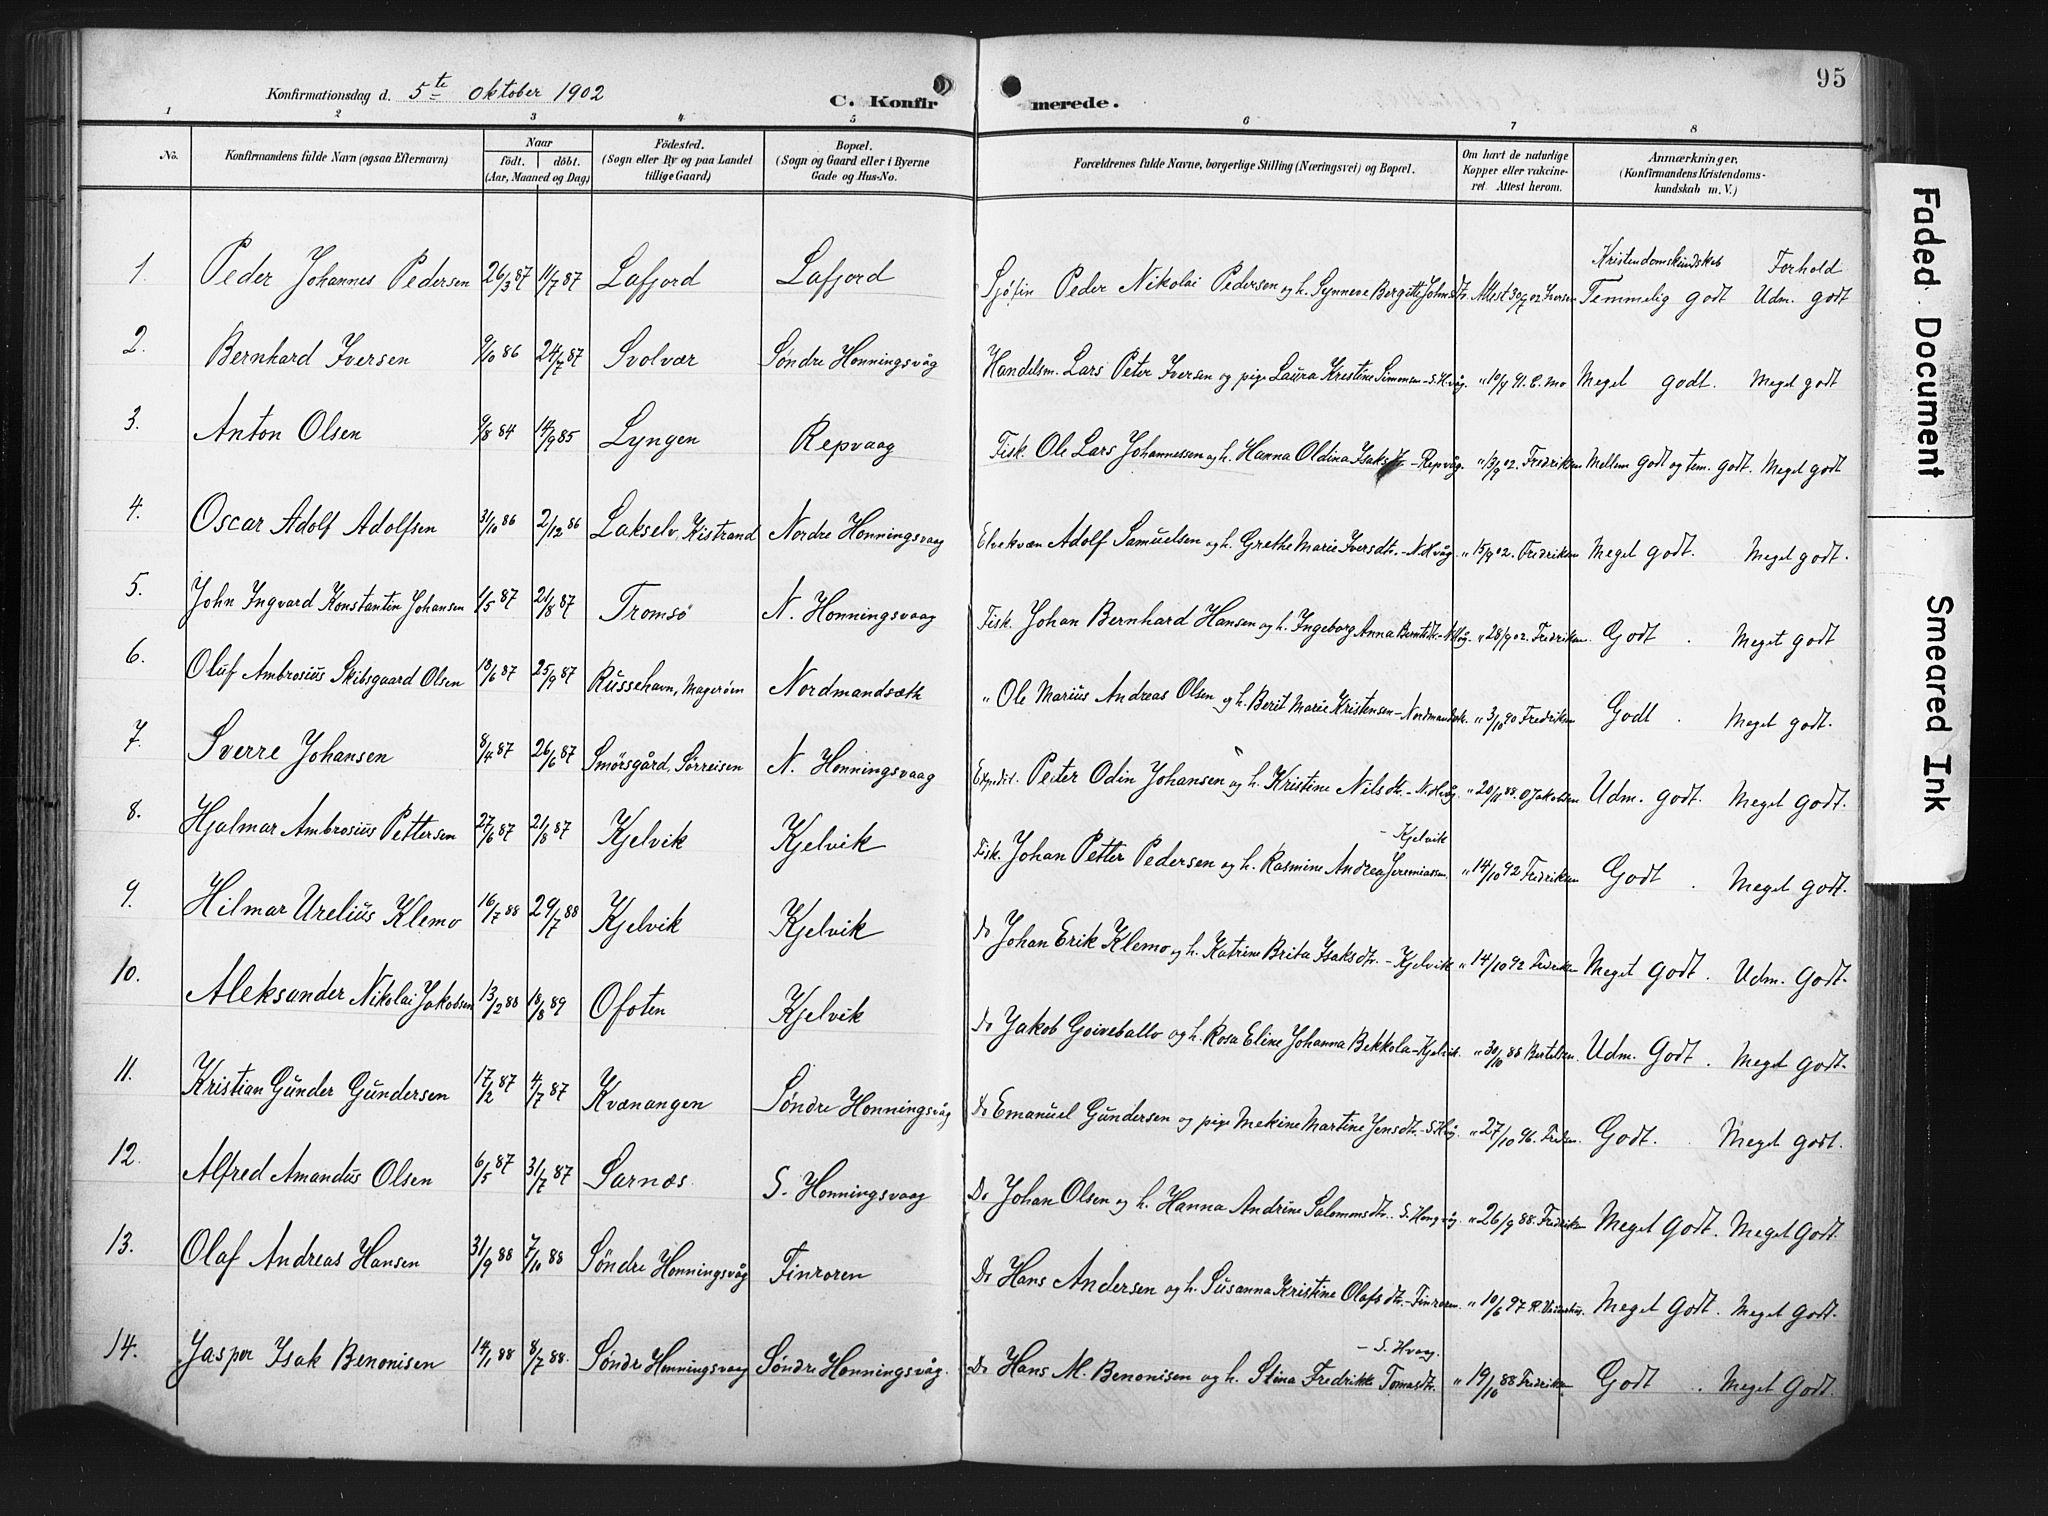 95
Konfirmationsdag d. 5te Oktober 1902
C. Konfirmerede.
1 2 3 4 5 6 7 8
No. | Konfirmandens fulde Navn (ogsaa Efternavn) | Naar født. døbt. (Aar, Maaned og Dag) | Fødested. (Sogn eller By og paa Landet tillige Gaard) | Bopæl. (Sogn og Gaard eller i Byerne Gade og Hus-No. | Forældrenes fulde Navne, borgerlige Stilling (Næringsvei) og Bopæl. | Om havt de naturlige Kopper eller vakcineret. Attest herom. | Anmærkninger. (Konfirmandens Kristendomskundskab m. V.)
Kristendomskundskab Forhold
1. Peder Johannes Pedersen 26/3 87 11/7 87 Lafjord Lafjord Sjøfin Peder Nikolai Pedersen og h. Synneve Bergitte Johnsdtr. Attest 30/7 02 Iversen Temmelig godt Udm. godt
2. Bernhard Iversen 9/10 86 24/7 87 Svolvær Søndre Honningsvåg Handelsm. Lars Peter Iversen og pige Laura Kristine Simonsen - S. Hvåg. " 10/9 91. C. Mo Meget godt. Meget godt
3. Anton Olsen 9/8 84 14/9 85 Lyngen Repvaag Fisk. Ole Lars Johannessen og h. Hanna Oldina Isaksdtr. - Repvåg. " 13/9 02. Fredriksen Mellem godt og tem. godt. Meget godt
4. Oscar Adolf Adolfsen 31/10 86 2/12 86 Lakselv, Kistrand Nordre Honningsvaag Elvekvæn Adolf Samuelsen og h. Grethe Marie Iversdtr. - N. Hvåg. " 15/9 02. Fredriksen Meget godt. Meget godt.
5. John Ingvard Konstantin Johansen 1/5 87 21/8 87 Tromsø N. Honningsvaag Fisk. Johan Bernhard Hansen og h. Ingeborg Anna Berntsdtr. - N. Hvåg. " 28/9 02. Fredriksen Godt . Meget godt
6. Oluf Ambrosius Skibsgaard Olsen 18/6 87 25/9 87 Russehavn, Magerøen Nordmandsæth " Ole Marius Andreas Olsen og h. Berit Marie Kristensen - Nordmandsæt. " 3/10 90 Fredriksen Godt . Meget godt.
7. Sverre Johansen 8/4 87 26/6 87 Smørsgård, Sørreisen N. Honningsvaag Expedit. Peter Odin Johansen og h. Kristine Nilsdtr. - N. Hvåg. " 20/11 88. O Jakobsen Udm. godt. Meget godt.
8. Hjalmar Ambrosius Pettersen 27/6 87 21/8 87 Kjelvik Kjelvik Fisk. Johan Petter Pedersen og h. Rasmine Andrea Jeremiassen. - Kjelvik " 14/10 92 Fredriksen Godt . Meget godt.
9. Hilmar Urelius Klemo 16/7 88 29/7 88 Kjelvik Kjelvik Do Johan Erik Klemo og h. Katrine Brita Isaksdtr. - Kjelvik " 14/10 92 Fredriksen Meget Godt . Udm. Godt.
10. Aleksander Nikolai Jakobsen 13/2 88 18/8 89 Ofoten Kjelvik Do Jakob Goiveballo og h. Rosa Eline Johanna Bekkola - Kjelvik. " 30/10 88 Bertelsen. Udm. Godt . Meget godt.
11. Kristian Gunder Gundersen 17/2 87 4/7 87 Kvænangen Søndre Honningsvåg Do Emanuel Gundersen og pige Mekine Martine Jensdtr. - S. Hvåg. " 27/10 96. Fredriksen. Godt. . Meget godt.
12. Alfred Amandus Olsen 6/5 87 31/7 87 Sarnæs. S. Honningsvaag Do Johan Olsen og h. Hanna Andrine Salomonsdtr. S. Hongvåg. " 26/9 88. Fredriksen Meget Godt . Meget Godt.
13. Olaf Andreas Hansen 31/9 88 7/10 88 Søndre Honningsvåg Finroren Do Hans Andersen og h. Susanna Kristine Olafsdtr. - Finroren. " 10/6 97 Meget Godt. Meget Godt.
14. Jasper Isak Benonisen 14/1 88 8/7 88. Søndre Honningsvaag Søndre Honningsvåg. Do Hans M. Benonisen og h. Stina Fredrikke Tomasdtr. - S. Hvaag. " 19/10 88 Fredriksen Godt . Meget Godt.
Faded Document
Smeared Ink